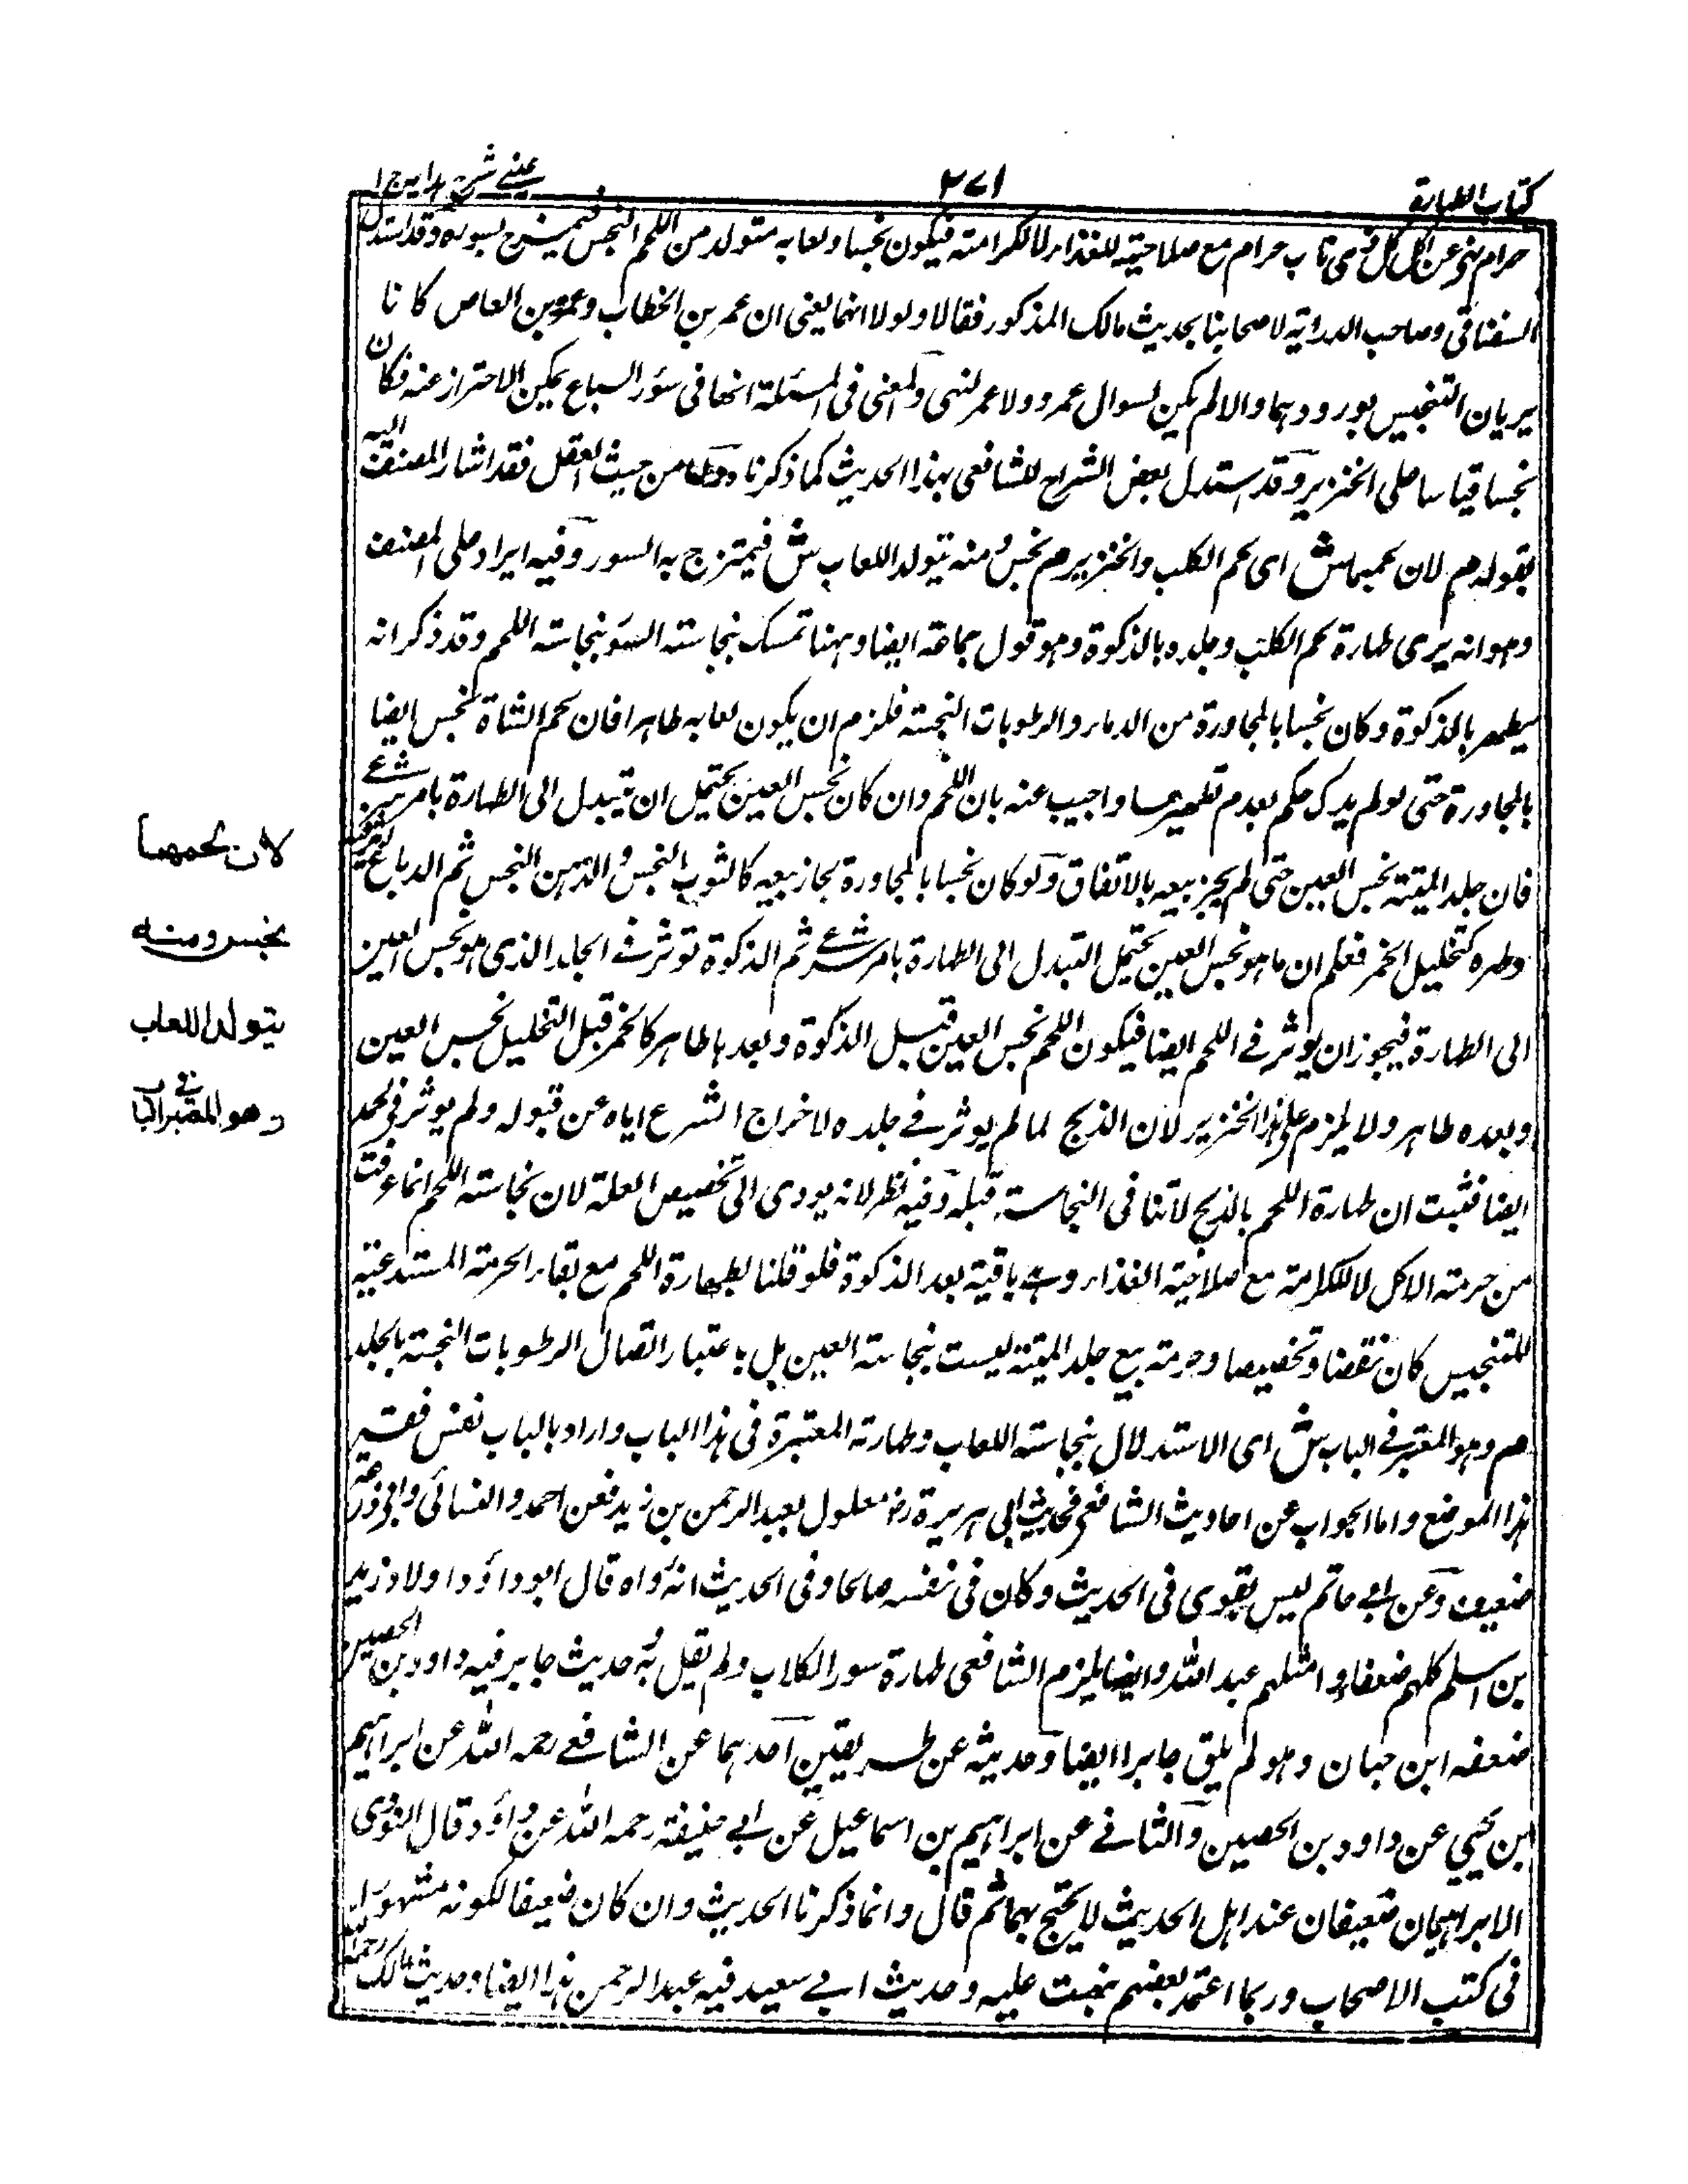 كتاب الطهارة
٢٧١
عينے شرح ہدایہ ج ١
حرام نهى عن اكل كل ذى ناب حرام مع صلاحيته للغذاء لا لكرامته فيكون نجسا ولعابه متولد من اللحم النجس فيمتزج بسوره وقد استدل
السغناقى وصاحب الدراية لاصحابنا بحديث مالك المذكور فقالا ولولا انهما يعنى ان عمر بن الخطاب وعمرو بن العاص كانا
يريان التنجيس بورودهما والا لم يكن لسوال عمرو ولا عمر لنهى والمعنى فى المسئلة انها فى سؤر السباع يمكن الاحتراز عنه فكان
نجسا قياسا على الخنزير وقد استدل بعض الشراح للشافعى بهذا الحديث كما ذكرنا واما من حيث العقل فقد اشار المصنف اليه
بقوله م لان لحمهما ش اى لحم الكلب والخنزير م نجس ومنه يتولد اللعاب ش فيمتزج به السور وفيه ايراد على المصنف
وهو انه يرى طهارة لحم الكلب وجلده بالذكوة وهو قول جماعة ايضا وههنا تمسك بنجاسته السؤر بنجاسته اللحم وقد ذكر انه
يطهر بالذكوة وكان نجسا بالمجاورة من الدماء والرطوبات النجسة فلزم ان يكون لعابه طاهرا فان لحم الشاة نجس ايضا
بالمجاورة حتى لو لم يذك حكم بعدم تطهيرها واجيب عنه بان اللحم وان كان نجس العين يحتمل ان يتبدل الى الطهارة بامر شرعے
فان جلد الميتة نجس العين حتى لم يجز بيعه بالاتفاق ولو كان نجسا بالمجاورة لجاز بيعه كالثوب النجس والدهن النجس ثم الدباغ
وطهره كتخليل الخمر فعلم ان ما هو نجس العين يحتمل التبدل الى الطهارة بامر شرعے ثم الذكوة توثر فے الجلد الذى هو نجس العين
الى الطهارة فيجوز ان يوثر فے اللحم ايضا فيكون اللحم نجس العين قبل الذكوة وبعدها طاهر كالخمر قبل التخليل نجس العين
وبعده طاهر ولا يلزم على هذا الخنزير لان الذبح لما لم يوثر فے جلده لاخراج الشرع اياه عن قبوله ولم يوثر فى لحمه
ايضا فثبت ان طهارة اللحم بالذبح لا تنافى النجاسته قبله وفيه نظر لانه يودى الى تخصيص العلة لان نجاسته اللحم انما عرفت
من حرمته الاكل لا للكرامته مع صلاحية الغذاء وهے باقية بعد الذكوة فلو قلنا بطهارة اللحم مع بقاء الحرمة المستدعية
للتنجيس كان نقضا وتخصيصا وحرمته بيع جلد الميتة ليست بنجاسته العين بل باعتبار اتصال الرطوبات النجسة بالجلد
م وهو المعتبر فے الباب ش اى الاستدلال بنجاسته اللعاب وطهارته المعتبرة فى هذا الباب واراد بالباب نفس فقه
هذا الموضع واما الجواب عن احاديث الشافعى فحديث ابى هريرة رض معلول بعبد الرحمن بن زيد فعن احمد والنسائى وابى زرعة
ضعيف وعن ابے حاتم ليس بقوى فى الحديث وكان فى نفسه صالحا وفى الحديث انه واه قال ابو داؤد اولاد زيد
بن اسلم كلهم ضعفاء وامثلهم عبد الله وايضا يلزم الشافعى طهارة سور الكلاب ولم يقل به وحديث جابر فيه داود بن الحصين
ضعفه ابن حبان وهو لم يلق جابرا ايضا وحديثه عن طريقين احدهما عن الشافعے رحمه الله عن ابراهيم
ابن يحيى عن داود بن الحصين والثانے عن ابراهيم بن اسماعيل عن ابے حنيفة رحمه الله عن داؤد قال النووى
الابراهيمان ضعيفان عند اهل الحديث لا يحتج بهما ثم قال وانما ذكرنا الحديث وان كان ضعيفا لكونه مشهورا
فى كتب الاصحاب وربما اعتمد بعضهم فنبهت عليه وحديث ابے سعيد فيه عبد الرحمن هذا ايضا وحديث مالك رحمه الله
لان لحمهما
نجس ومنه
يتولد اللعاب
وهو المعتبر فى الباب